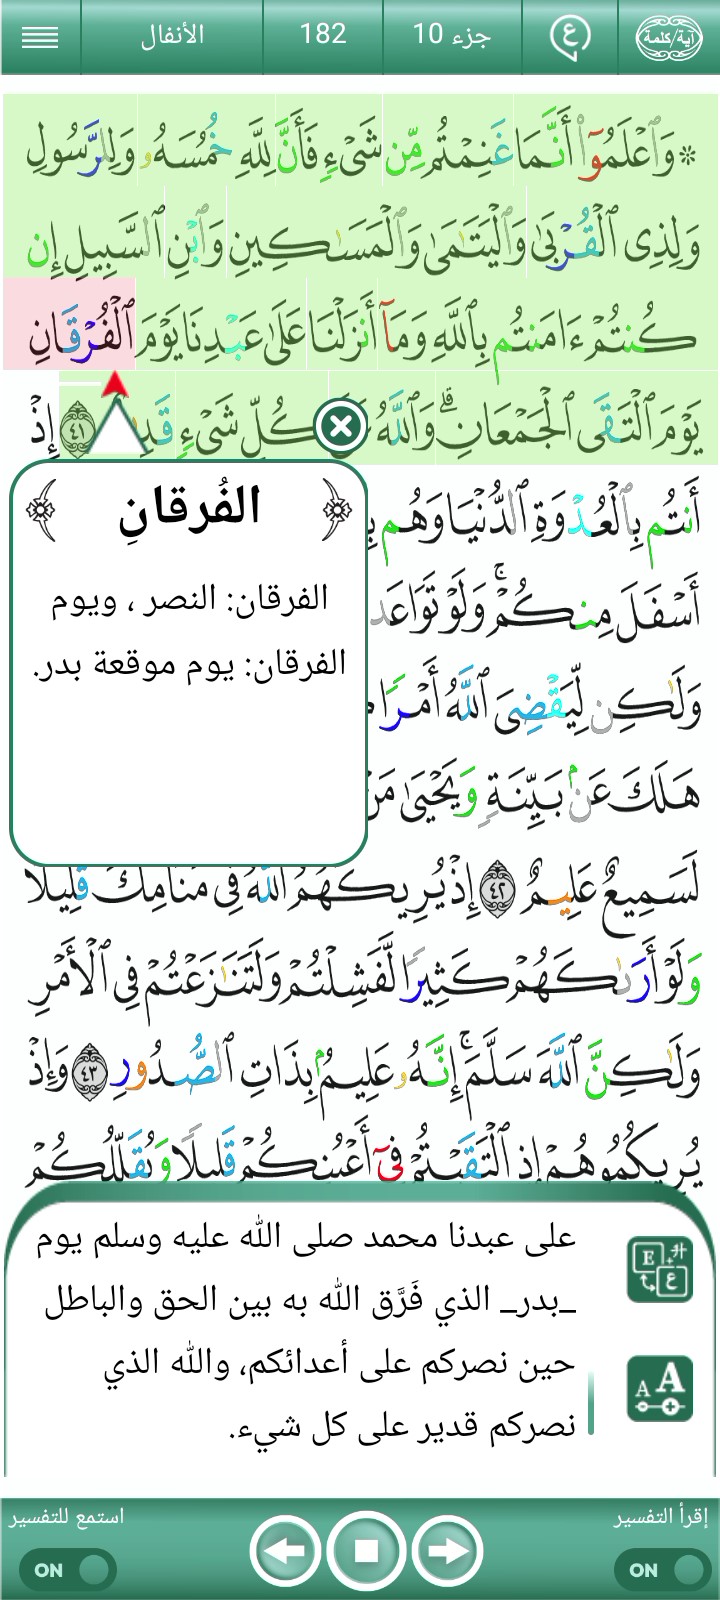 آية/كلمة
ع
جزء 10
182
الأنفال
۞ وَٱعۡلَمُوٓاْ أَنَّمَا غَنِمۡتُم مِّن شَيۡءٖ فَأَنَّ لِلَّهِ خُمُسَهُۥ وَلِلرَّسُولِ
وَلِذِي ٱلۡقُرۡبَىٰ وَٱلۡيَتَٰمَىٰ وَٱلۡمَسَٰكِينِ وَٱبۡنِ ٱلسَّبِيلِ إِن
كُنتُمۡ ءَامَنتُم بِٱللَّهِ وَمَآ أَنزَلۡنَا عَلَىٰ عَبۡدِنَا يَوۡمَ ٱلۡفُرۡقَانِ
يَوۡمَ ٱلۡتَقَى ٱلۡجَمۡعَانِۗ وَٱللَّهُ كُلِّ شَيۡءٖ ٤١ إِذۡ
الفُرقانِ
الفرقان: النصر ، ويوم
الفرقان: يوم موقعة بدر.
أَنتُم بِٱلۡعُدۡوَةِ ٱلدُّنۡيَا وَهُم
أَسۡفَلَ مِنكُمۡۚ وَلَوۡ
وَلَٰكِن لِّيَقۡضِيَ ٱللَّهُ أَمۡرٗا
هَلَكَ عَنۢ بَيِّنَةٖ وَيَحۡيَىٰ مَنۡ
لَسَمِيعٌ عَلِيمٌ ٤٢ إِذۡ يُرِيكَهُمُ ٱللَّهُ فِي مَنَامِكَ قَلِيلٗا
وَلَوۡ أَرَىٰكَهُمۡ كَثِيرٗا لَّفَشِلۡتُمۡ وَلَتَنَٰزَعۡتُمۡ فِي ٱلۡأَمۡرِ
وَلَٰكِنَّ ٱللَّهَ سَلَّمَۚ إِنَّهُۥ عَلِيمُۢ بِذَاتِ ٱلصُّدُورِ ٤٣ وَإِذۡ
يُرِيكُمُوهُمۡ إِذِ ٱلۡتَقَيۡتُمۡ فِيٓ أَعۡيُنِكُمۡ قَلِيلٗا وَيُقَلِّلُكُمۡ
على عبدنا محمد صلى الله عليه وسلم يوم
_بدر_ الذي فَرَّق الله به بين الحق والباطل
حين نصركم على أعدائكم، والله الذي
نصركم قدير على كل شيء.
إقرأ التفسير
استمع للتفسير
ON
ON